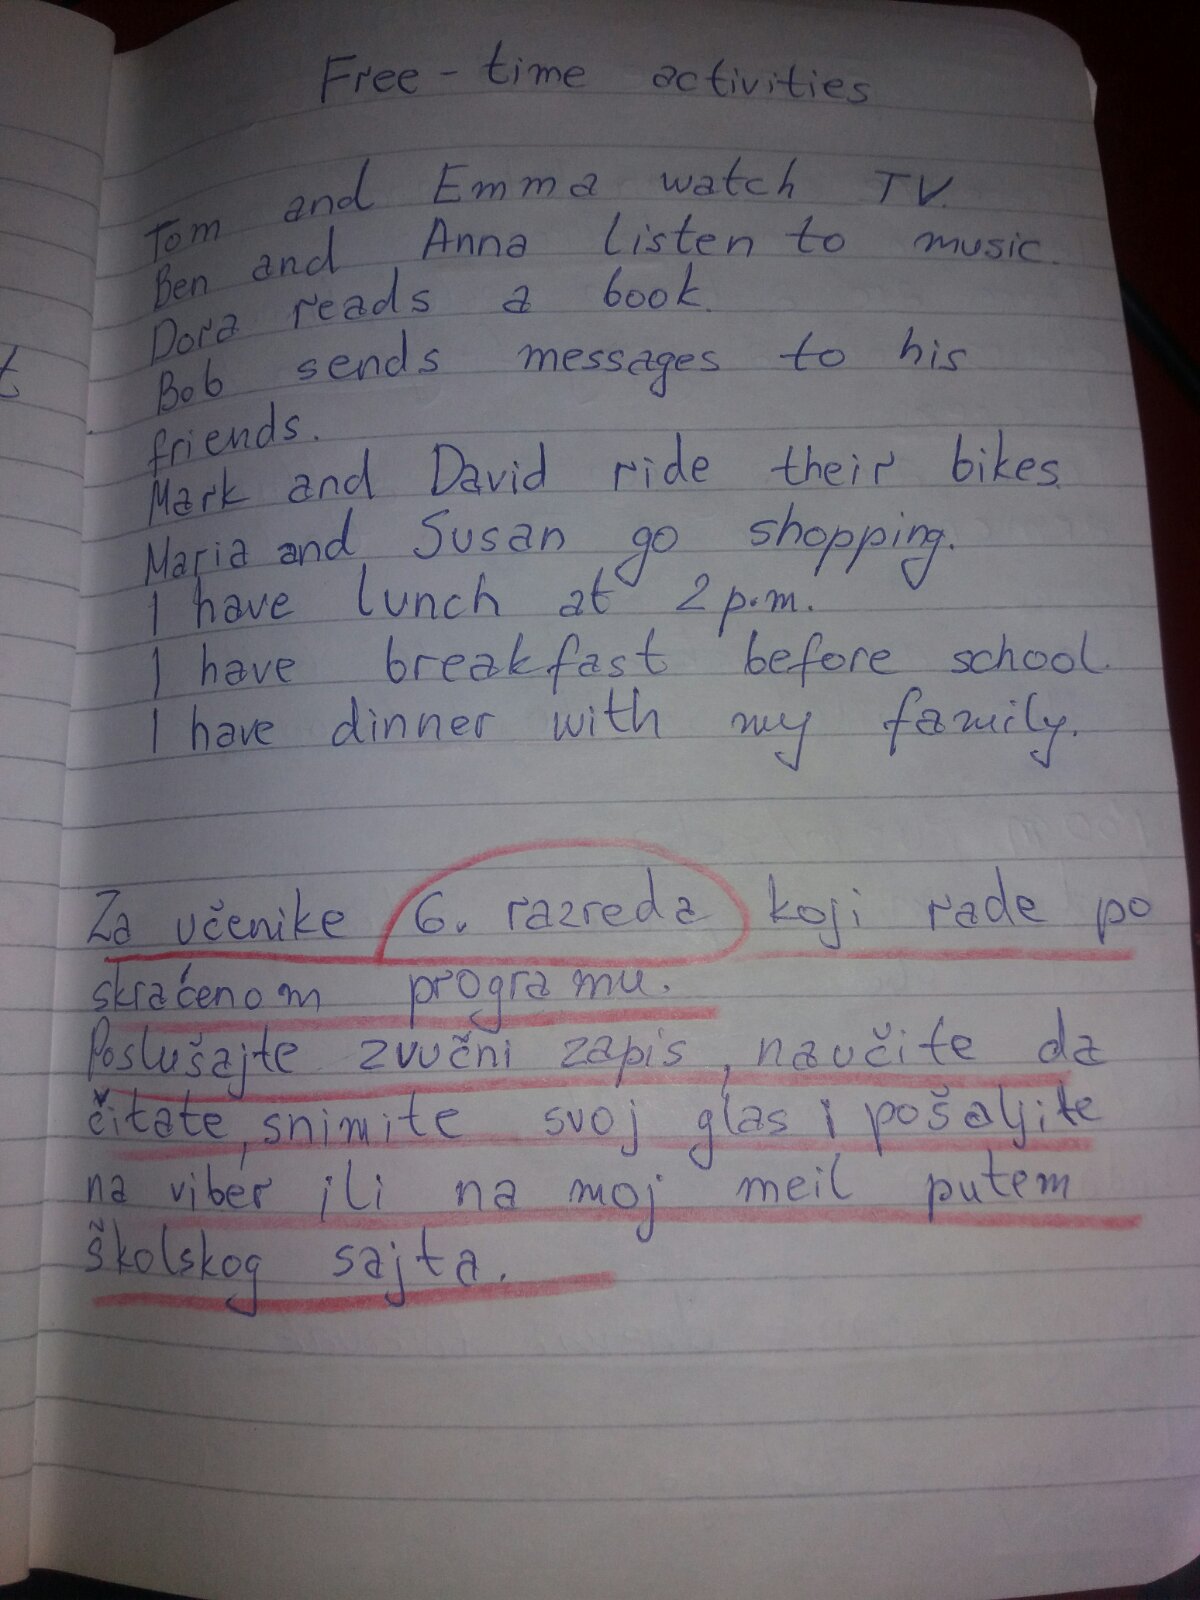 Free-time activities
Tom and Emma watch TV.
Ben and Anna listen to music.
Dora reads a book.
Bob sends messages to his
friends.
Mark and David ride their bikes.
Maria and Susan go shopping.
I have lunch at 2 p.m.
I have breakfast before school.
I have dinner with my family.
Za učenike 6. razreda koji rade po
skraćenom programu.
Poslušajte zvučni zapis, naučite da
čitate, snimite svoj glas i pošaljite
na viber ili na moj meil putem
školskog sajta.